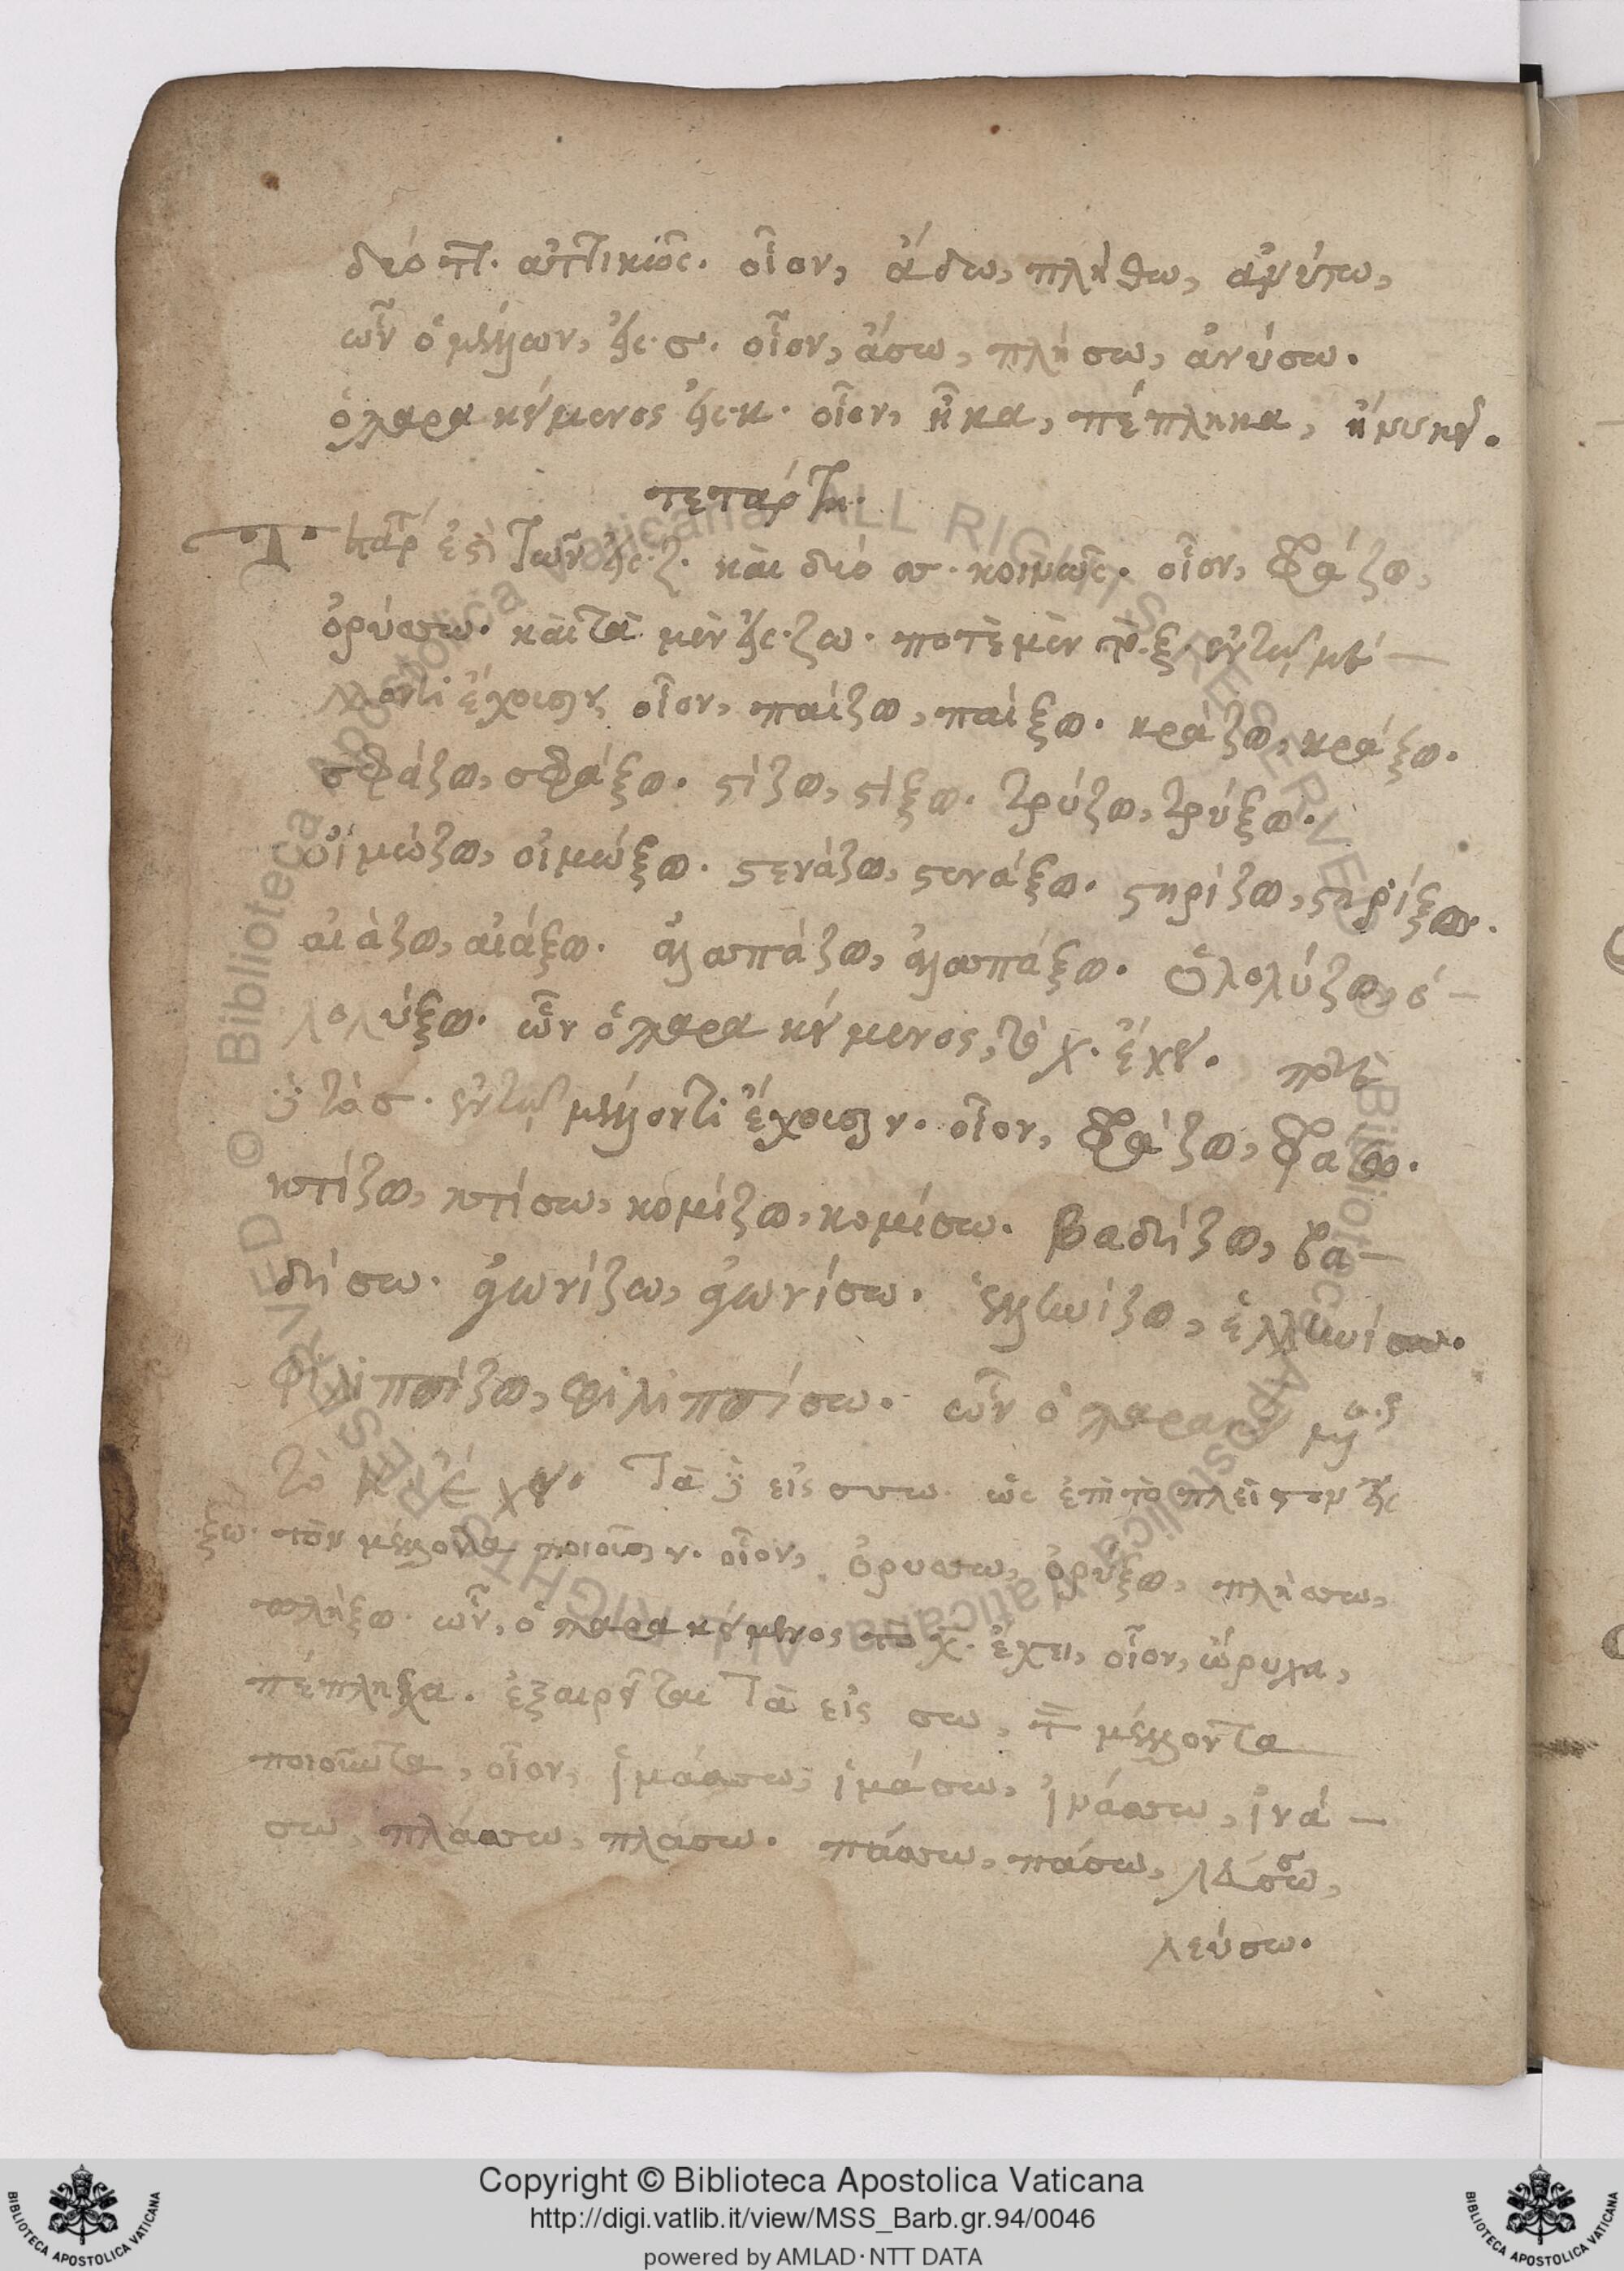 δύο ττ. ἀττικῶς. οἷον, ἄδω, πλήθω, ἀνύτω,
ὧν ὁ μέλλων, εἰς σ. οἷον, ἄσω, πλήσω, ἀνύσω.
ὁ παρακείμενος εἰς κ. οἷον, ἧκα, πέπληκα, ἤνυκα.
τετάρτη.
Τετάρτη ἐστὶ τῶν εἰς ζ. καὶ δύο σσ. κοινῶς. οἷον, φράζω,
ὀρύσσω. καὶ τὰ μὲν εἰς ζω. ποτὲ μὲν τὸ ξ. ἐν τῷ μέ-
λλοντι ἔχουσιν, οἷον, παίζω, παίξω. κράζω, κράξω.
σφάζω, σφάξω. στίζω, στίξω. τρύζω, τρύξω.
οἰμώζω, οἰμώξω. στενάζω, στενάξω. στηρίζω, στηρίξω.
αἰάζω, αἰάξω. ἀλαπάζω, ἀλαπάξω. ὀλολύζω, ὀ-
λολύξω. ὧν ὁ παρακείμενος, τὸ χ. ἔχει. ποτὲ
δὲ τὸ σ. ἐν τῷ μέλλοντι ἔχουσιν. οἷον, φράζω, φράσω.
κτίζω, κτίσω, κομίζω, κομίσω. βαδίζω, βα-
δίσω. ἀγωνίζω, ἀγωνίσω. ἑλληνίζω, ἑλληνίσω.
φιλιππίζω, φιλιππίσω. ὧν ὁ παρακείμενος
τὸ κ ἔχει. Τὰ δὲ εἰς σσω. ὡς ἐπὶ τὸ πλεῖστον εἰς
ξω. τὸν μέλλοντα ποιοῦσιν. οἷον, ὀρύσσω, ὀρύξω, πλήσσω,
πλήξω. ὧν, ὁ παρακείμενος τὸ χ. ἔχει, οἷον, ὤρυχα,
πέπληχα. ἐξαιρεῖται τὰ εἰς σω, τὸν μέλλοντα
ποιοῦντα, οἷον, ἱμάσσω, ἱμάσω, ἱνάσσω, ἱνά-
σω, πλάσσω, πλάσω. πάσσω, πάσω, λεύσσω,
λεύσω.
Copyright © Biblioteca Apostolica Vaticana
http://digi.vatlib.it/view/MSS_Barb.gr.94/0046
powered by AMLAD·NTT DATA